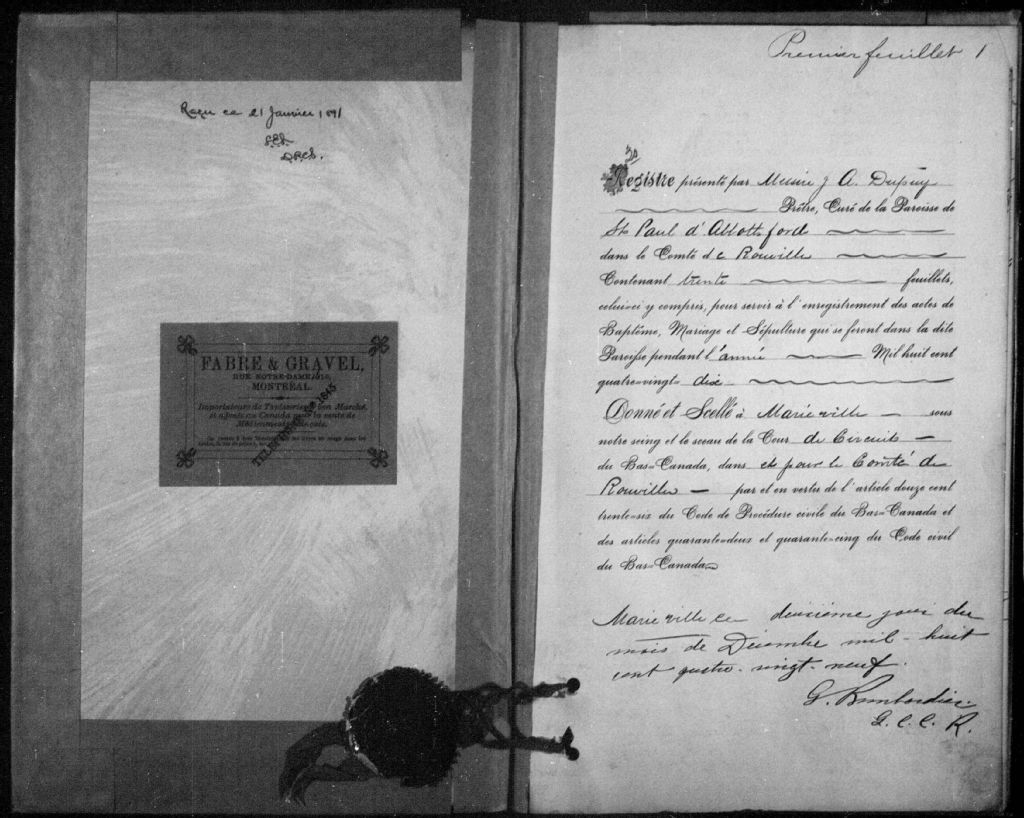 Reçu ce 21 Janvier 1891
FABRE & GRAVEL,
RUE NOTRE-DAME,
MONTRÉAL.
Importateurs de Tapisseries bon Marché,
TELEPHONE 1845
Premier feuillet 1
30
Registre présenté par Messire J A. Dupuy
Prêtre, Curé de la Paroisse de
St Paul d'Abbottsford
dans le Comté de Rouville
Contenant trente feuillets,
celui-ci y compris, pour servir à l'enregistrement des actes de
Baptême, Mariage et Sépulture qui se feront dans la dite
Paroisse pendant l'année Mil huit cent
quatre-vingt-dix
Donné et Scellé à Marieville sous
notre seing et le sceau de la Cour de Circuit
du Bas-Canada, dans et pour le Comté de
Rouville par et en vertu de l'article douze cent
trente-six du Code de Procédure civile du Bas-Canada et
des articles quarante-deux et quarante-cinq du Code civil
du Bas-Canada
Marieville ce deuxième jour du
mois de Décembre mil-huit
cent quatre-vingt-neuf.
G. Bombardier
G. C. C. R.